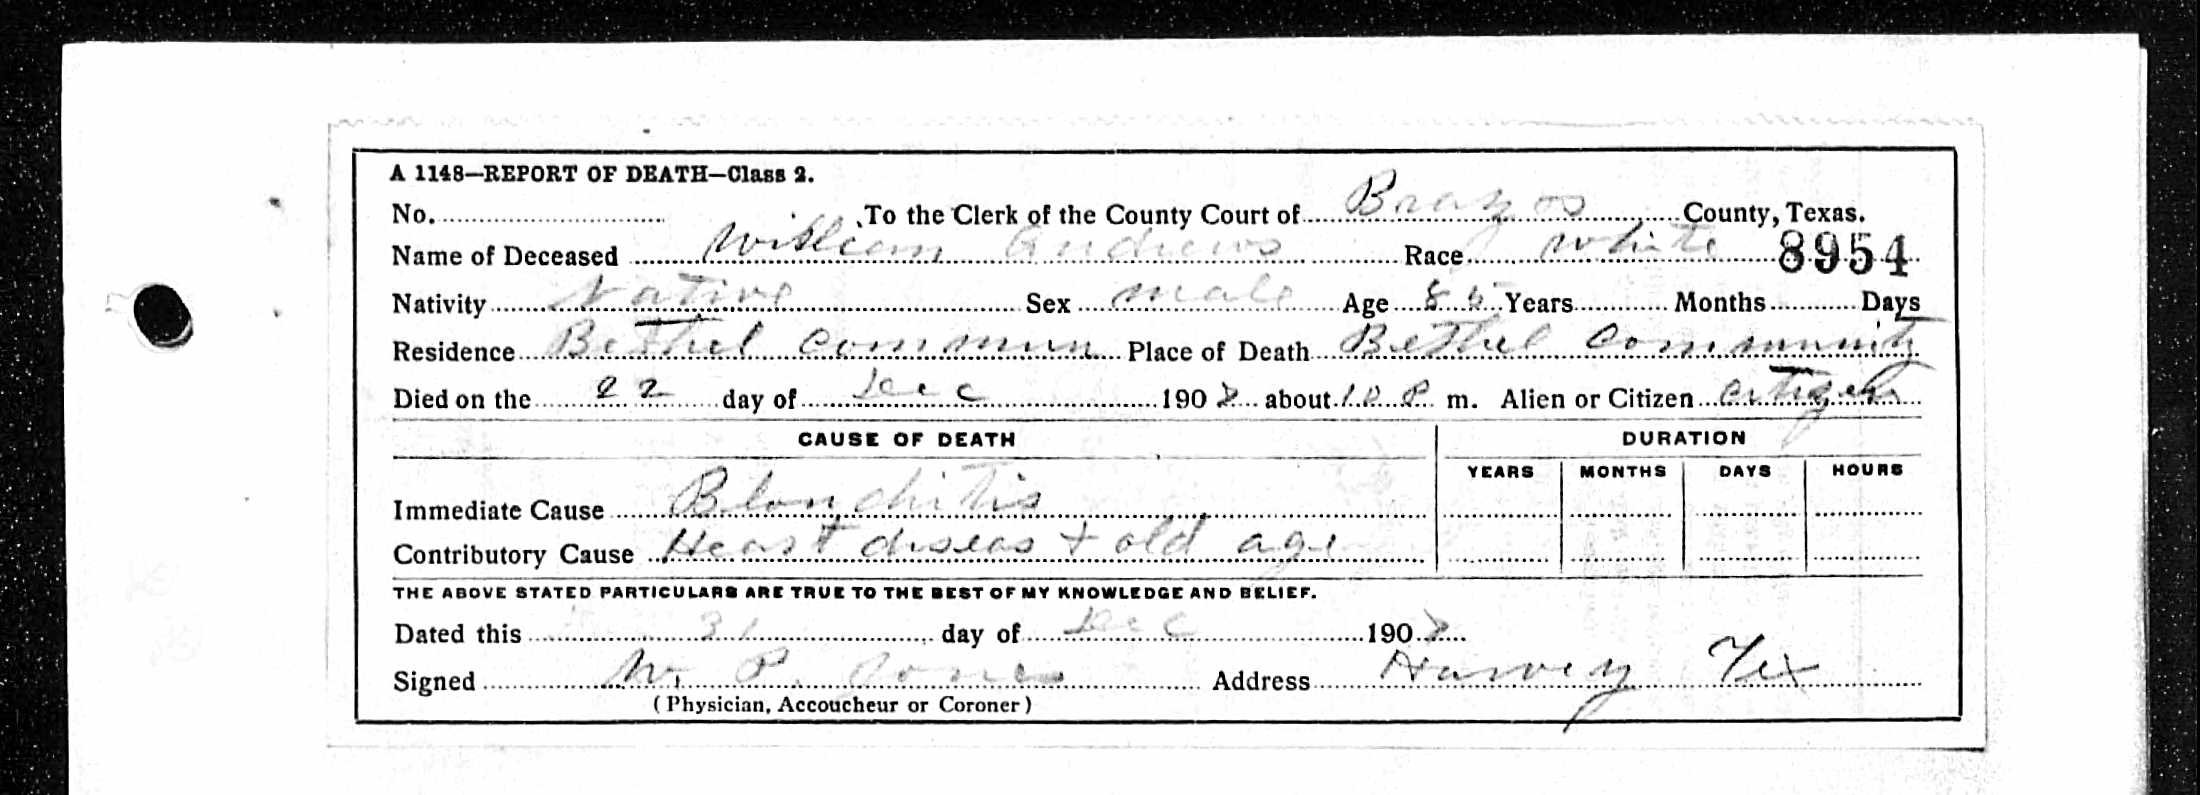 A 1148—REPORT OF DEATH—Class 2.
No. To the Clerk of the County Court of Brazos County, Texas.
Name of Deceased William Andrews Race white 8954
Nativity Native Sex male Age Years Months Days
Residence Bethel commun Place of Death Bethel Community
Died on the 22 day of Dec 190 about 10 P m. Alien or Citizen citizen
CAUSE OF DEATH DURATION
YEARS MONTHS DAYS HOURS
Immediate Cause Blonchitis
Contributory Cause Heart diseas + old age
THE ABOVE STATED PARTICULARS ARE TRUE TO THE BEST OF MY KNOWLEDGE AND BELIEF.
Dated this 31 day of Dec 190
Signed W. P. Jones Address Harvey Tex
(Physician, Accoucheur or Coroner)